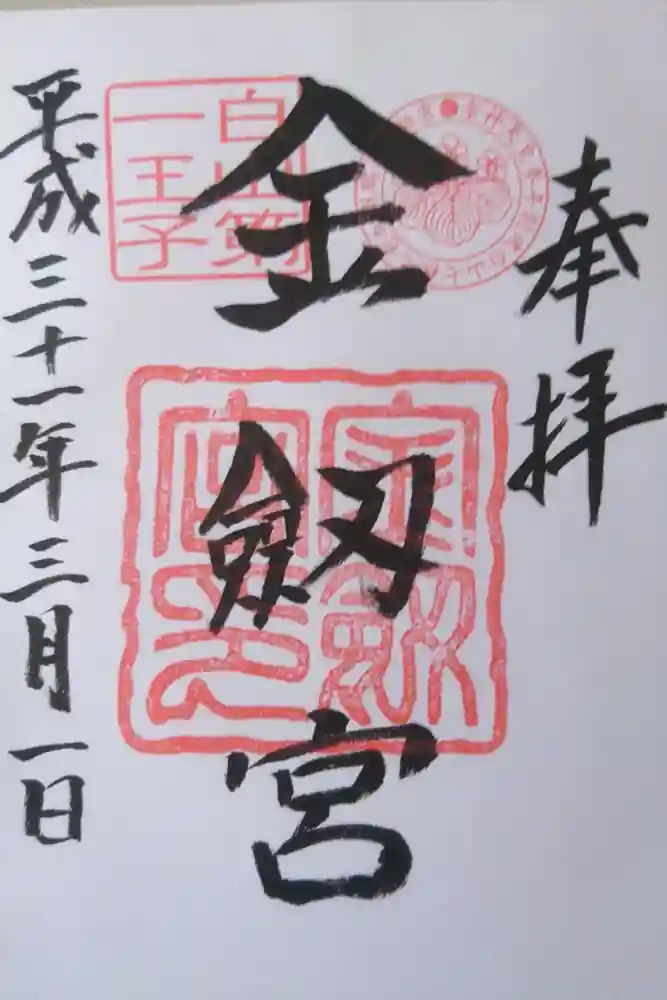 奉拝
白山第
一王子
金劔宮
金劔
宮印
平成三十一年三月一日